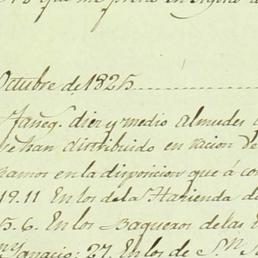 que me
Octubre de 1825
faneg.s diez y medio almudes
se han distribuido en racion de
hamos en la disposicion que á con
19.11 En los de la Hacienda de
5.6. En los Baqueros de las
Ygnacio: 27. En los de S.n